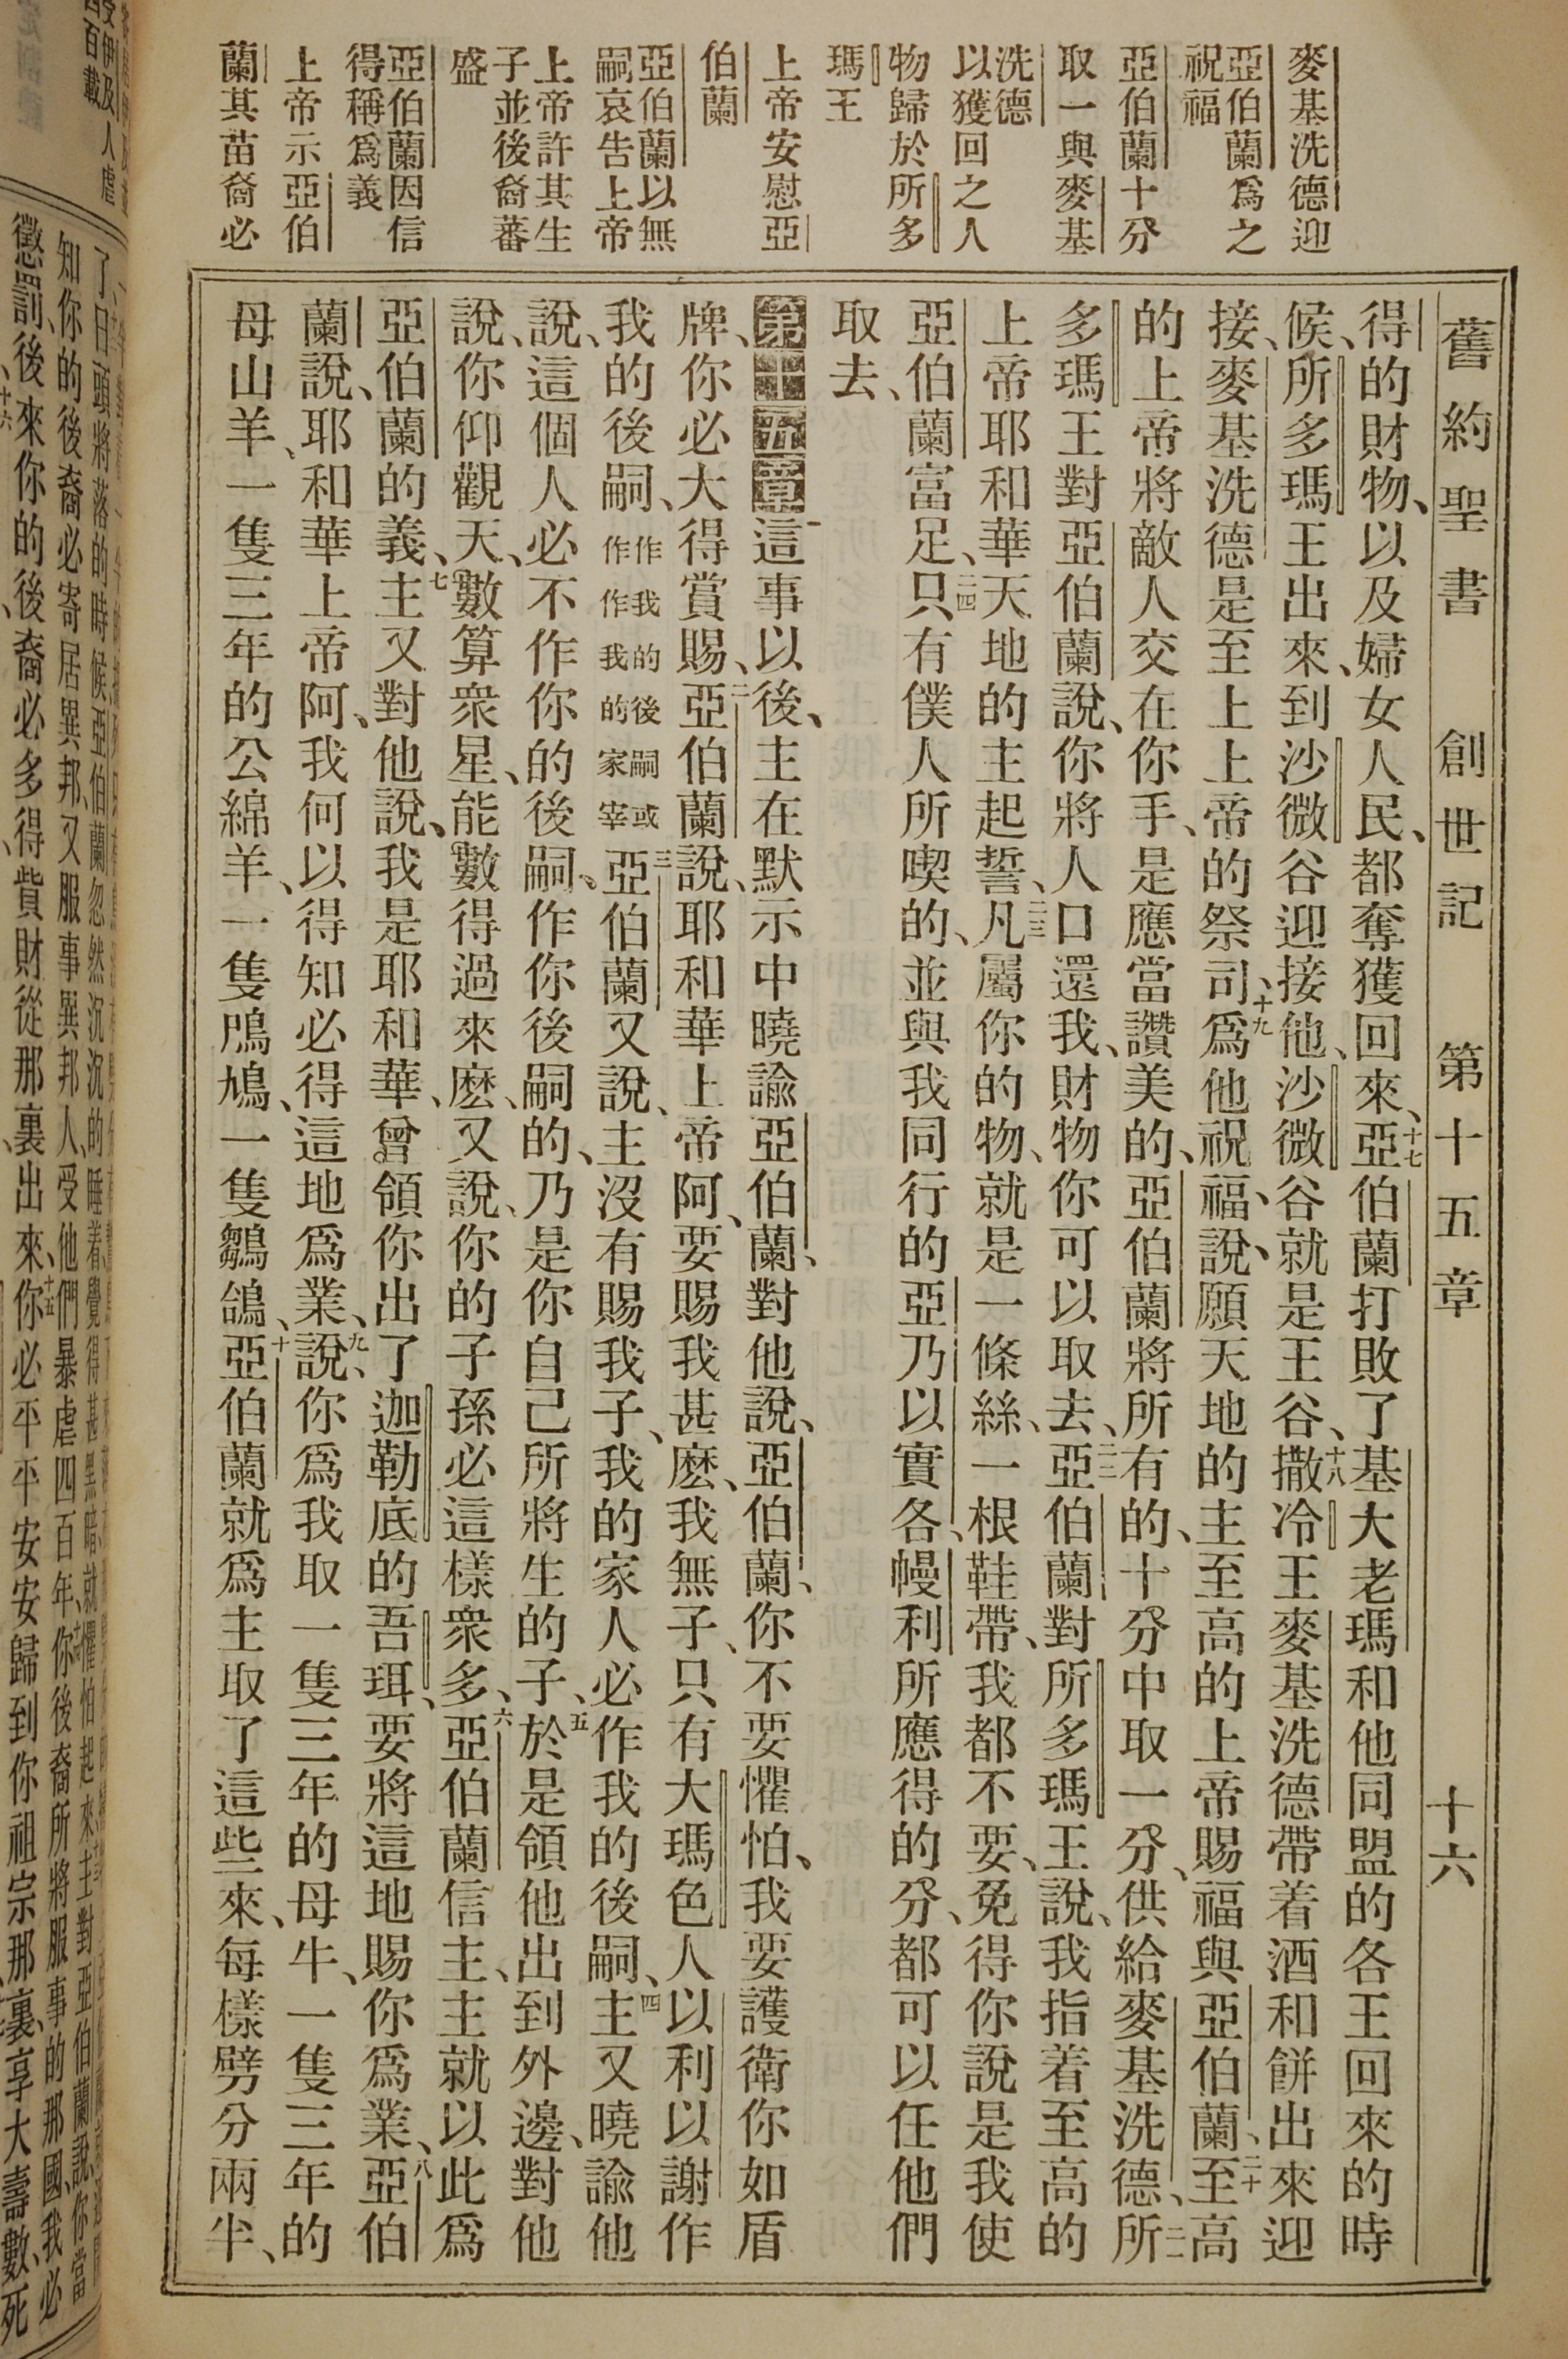 舊約聖書 創世記 第十五章 十六
麥基洗德迎
亞伯蘭爲之
祝福
亞伯蘭十分
取一與麥基
洗德
以獲回之人
物歸於所多
瑪王
上帝安慰亞
伯蘭
亞伯蘭以無
嗣哀告上帝
上帝許其生
子並後裔蕃
盛
亞伯蘭因信
得稱爲義
上帝示亞伯
蘭其苗裔必
得的財物、以及婦女人民、都奪獲回來、十七亞伯蘭打敗了基大老瑪和他同盟的各王回來的時
候、所多瑪王出來、到沙微谷迎接他、沙微谷就是王谷、十八撒冷王麥基洗德帶着酒和餅出來迎
接、麥基洗德是至上上帝的祭司、十九爲他祝福、說、願天地的主至高的上帝賜福與亞伯蘭、二十至高
的上帝將敵人交在你手、是應當讚美的、亞伯蘭將所有的、十分中取一分、供給麥基洗德、二一所
多瑪王對亞伯蘭說、你將人口還我、財物你可以取去、二二亞伯蘭對所多瑪王說、我指着至高的
上帝耶和華天地的主起誓、二三凡屬你的物、就是一條絲、一根鞋帶、我都不要、免得你說是我使
亞伯蘭富足、二四只有僕人所喫的、並與我同行的亞乃以實各、幔利所應得的分、都可以任他們
取去、
第十五章 一這事以後、主在默示中曉諭亞伯蘭、對他說、亞伯蘭、你不要懼怕、我要護衛你如盾
牌、你必大得賞賜、二亞伯蘭說、耶和華上帝阿、要賜我甚麽、我無子、只有大瑪色人以利以謝作
我的後嗣、作我的後嗣或作作我的家宰三亞伯蘭又說、主沒有賜我子、我的家人必作我的後嗣、四主又曉諭他
說、這個人必不作你的後嗣、作你後嗣的、乃是你自己所將生的子、五於是領他出到外邊、對他
說、你仰觀天、數算衆星、能數得過來麽、又說、你的子孫必這樣衆多、六亞伯蘭信主、主就以此爲
亞伯蘭的義、七主又對他說、我是耶和華、曾領你出了迦勒底的吾珥、要將這地賜你爲業、八亞伯
蘭說、耶和華上帝阿、我何以得知必得這地爲業、九說、你爲我取一隻三年的母牛、一隻三年的
母山羊、一隻三年的公綿羊、一隻鳲鳩、一隻鶵鴿、十亞伯蘭就爲主取了這些來、每樣劈分兩半、
知你的後裔必寄居異邦、又服事異邦人、受他們暴虐四百年、你後裔所將服事的那國、我必
懲罰、後來你的後裔必多得貲財從那裏出來、十五你必平平安安歸到你祖宗那裏、享大壽數、死